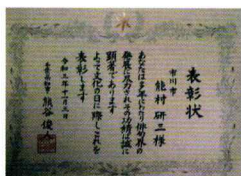 表彰状
市川市
能村研三様
あなたは多年にわたり俳界の
発展に尽力されその功績は誠に
顕著であります
よって文化の日に際しこれを
表彰します
令和三年十一月三日
千葉県知事 熊谷俊人